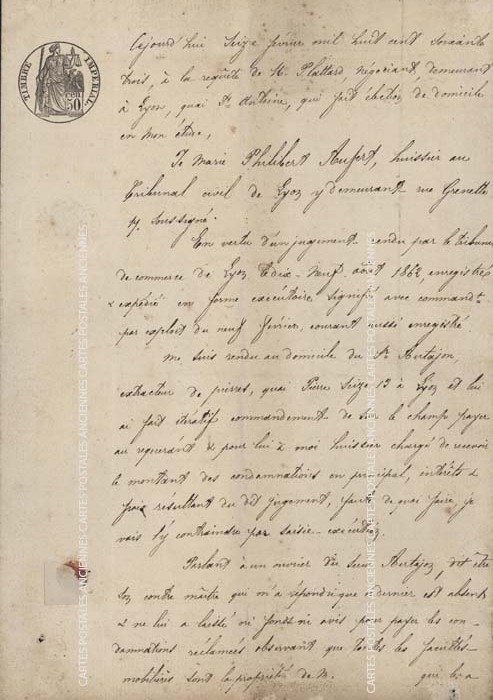 TIMBRE IMPÉRIAL
50
Aujourd'hui Seize février mil huit cent soixante
trois, à la requête de M. Plattard, négociant, demeurant
à Lyon, quai St Antoine, qui fait élection de domicile
en mon étude,
Je Marie Philibert huissier au
Tribunal civil de Lyon y demeurant rue Grenette
soussigné
En vertu d'un jugement rendu par le tribunal
de commerce de Lyon le dix-neuf août 1862, enregistré
& expédié en forme exécutoire signifié avec commandt
par exploit du neuf février, courant aussi enregistré
me suis rendu au domicile du Sr
extracteur de pierres, quai Pierre Scize 13 à Lyon et lui
ai fait itératif commandement de sur le champ payer
au requérant & pour lui à moi huissier chargé de recevoir
le montant des condamnations en principal, intérêts &
frais résultant du dit jugement, faute de quoi faire, je
vais l'y contraindre par saisie-exécution.
Parlant à un ouvrier du sieur dit être
son contre maître qui m'a répondu que ce dernier est absent
& ne lui a laissé ni fonds ni avis pour payer les con-
damnations réclamées observant que toutes les facultés
mobilières sont la propriété de M. qui les a
CARTES POSTALES ANCIENNES CARTES POSTALES ANCIENNES CARTES POSTALES ANCIENNES
CARTES POSTALES ANCIENNES CARTES POSTALES ANCIENNES